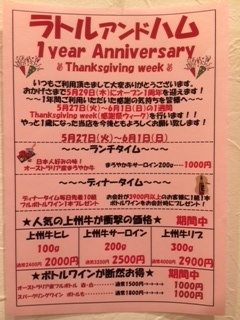 ラトルアンドハム
1 year Anniversary
Thanksgiving week
いつもご利用頂きまして大変ありがとうございます。
おかげさまで5月29日(木)にオープン1周年を迎えます!
～～1年間ご利用いただいた感謝の気持ちを皆様へ～～
5月27日(火)～6月1日(日)の1週間
Thanksgiving week(感謝祭ウィーク)を行います!!
やっと1歳になった当店を今後ともよろしくお願い致します!
5月27日(火)～6月1日(日)
～～～～ランチタイム～～～～
日本人好みの味!
オーストラリア産まろやか牛
まろやか牛サーロイン200g――1000円
～～～～ディナータイム～～～～
ディナータイム毎日先着10組
フルボトルワイン1本プレゼント
お会計が3900円以上のお客様に1組1本
ボトルワインをお会計時にプレゼント!
★人気の上州牛が衝撃の価格★ 期間中
上州牛ヒレ
100g
通常2400円 2000円
上州牛サーロイン
200g
通常3200円 2500円
上州牛リブ
300g
通常4400円 2900円
★ボトルワインが断然お得★ 期間中
オーストラリア産フルボトル 赤・白――通常1500円――→1000円
スパークリングワイン ボトルも――通常1800円――→1000円